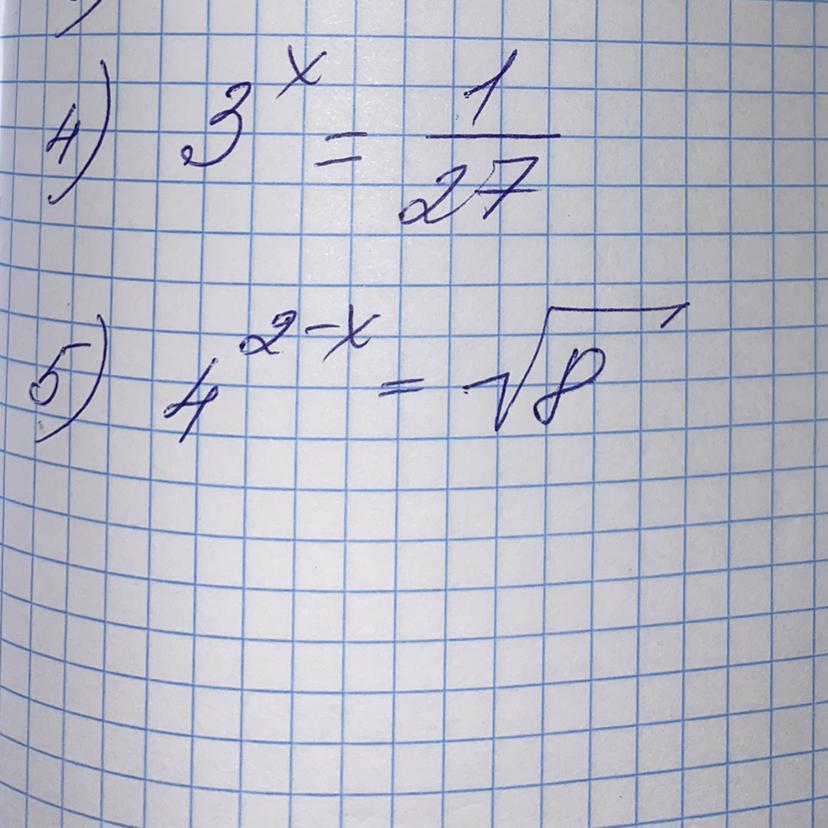 4) 3^x = 1/27
5) 4^(2-x) = √8